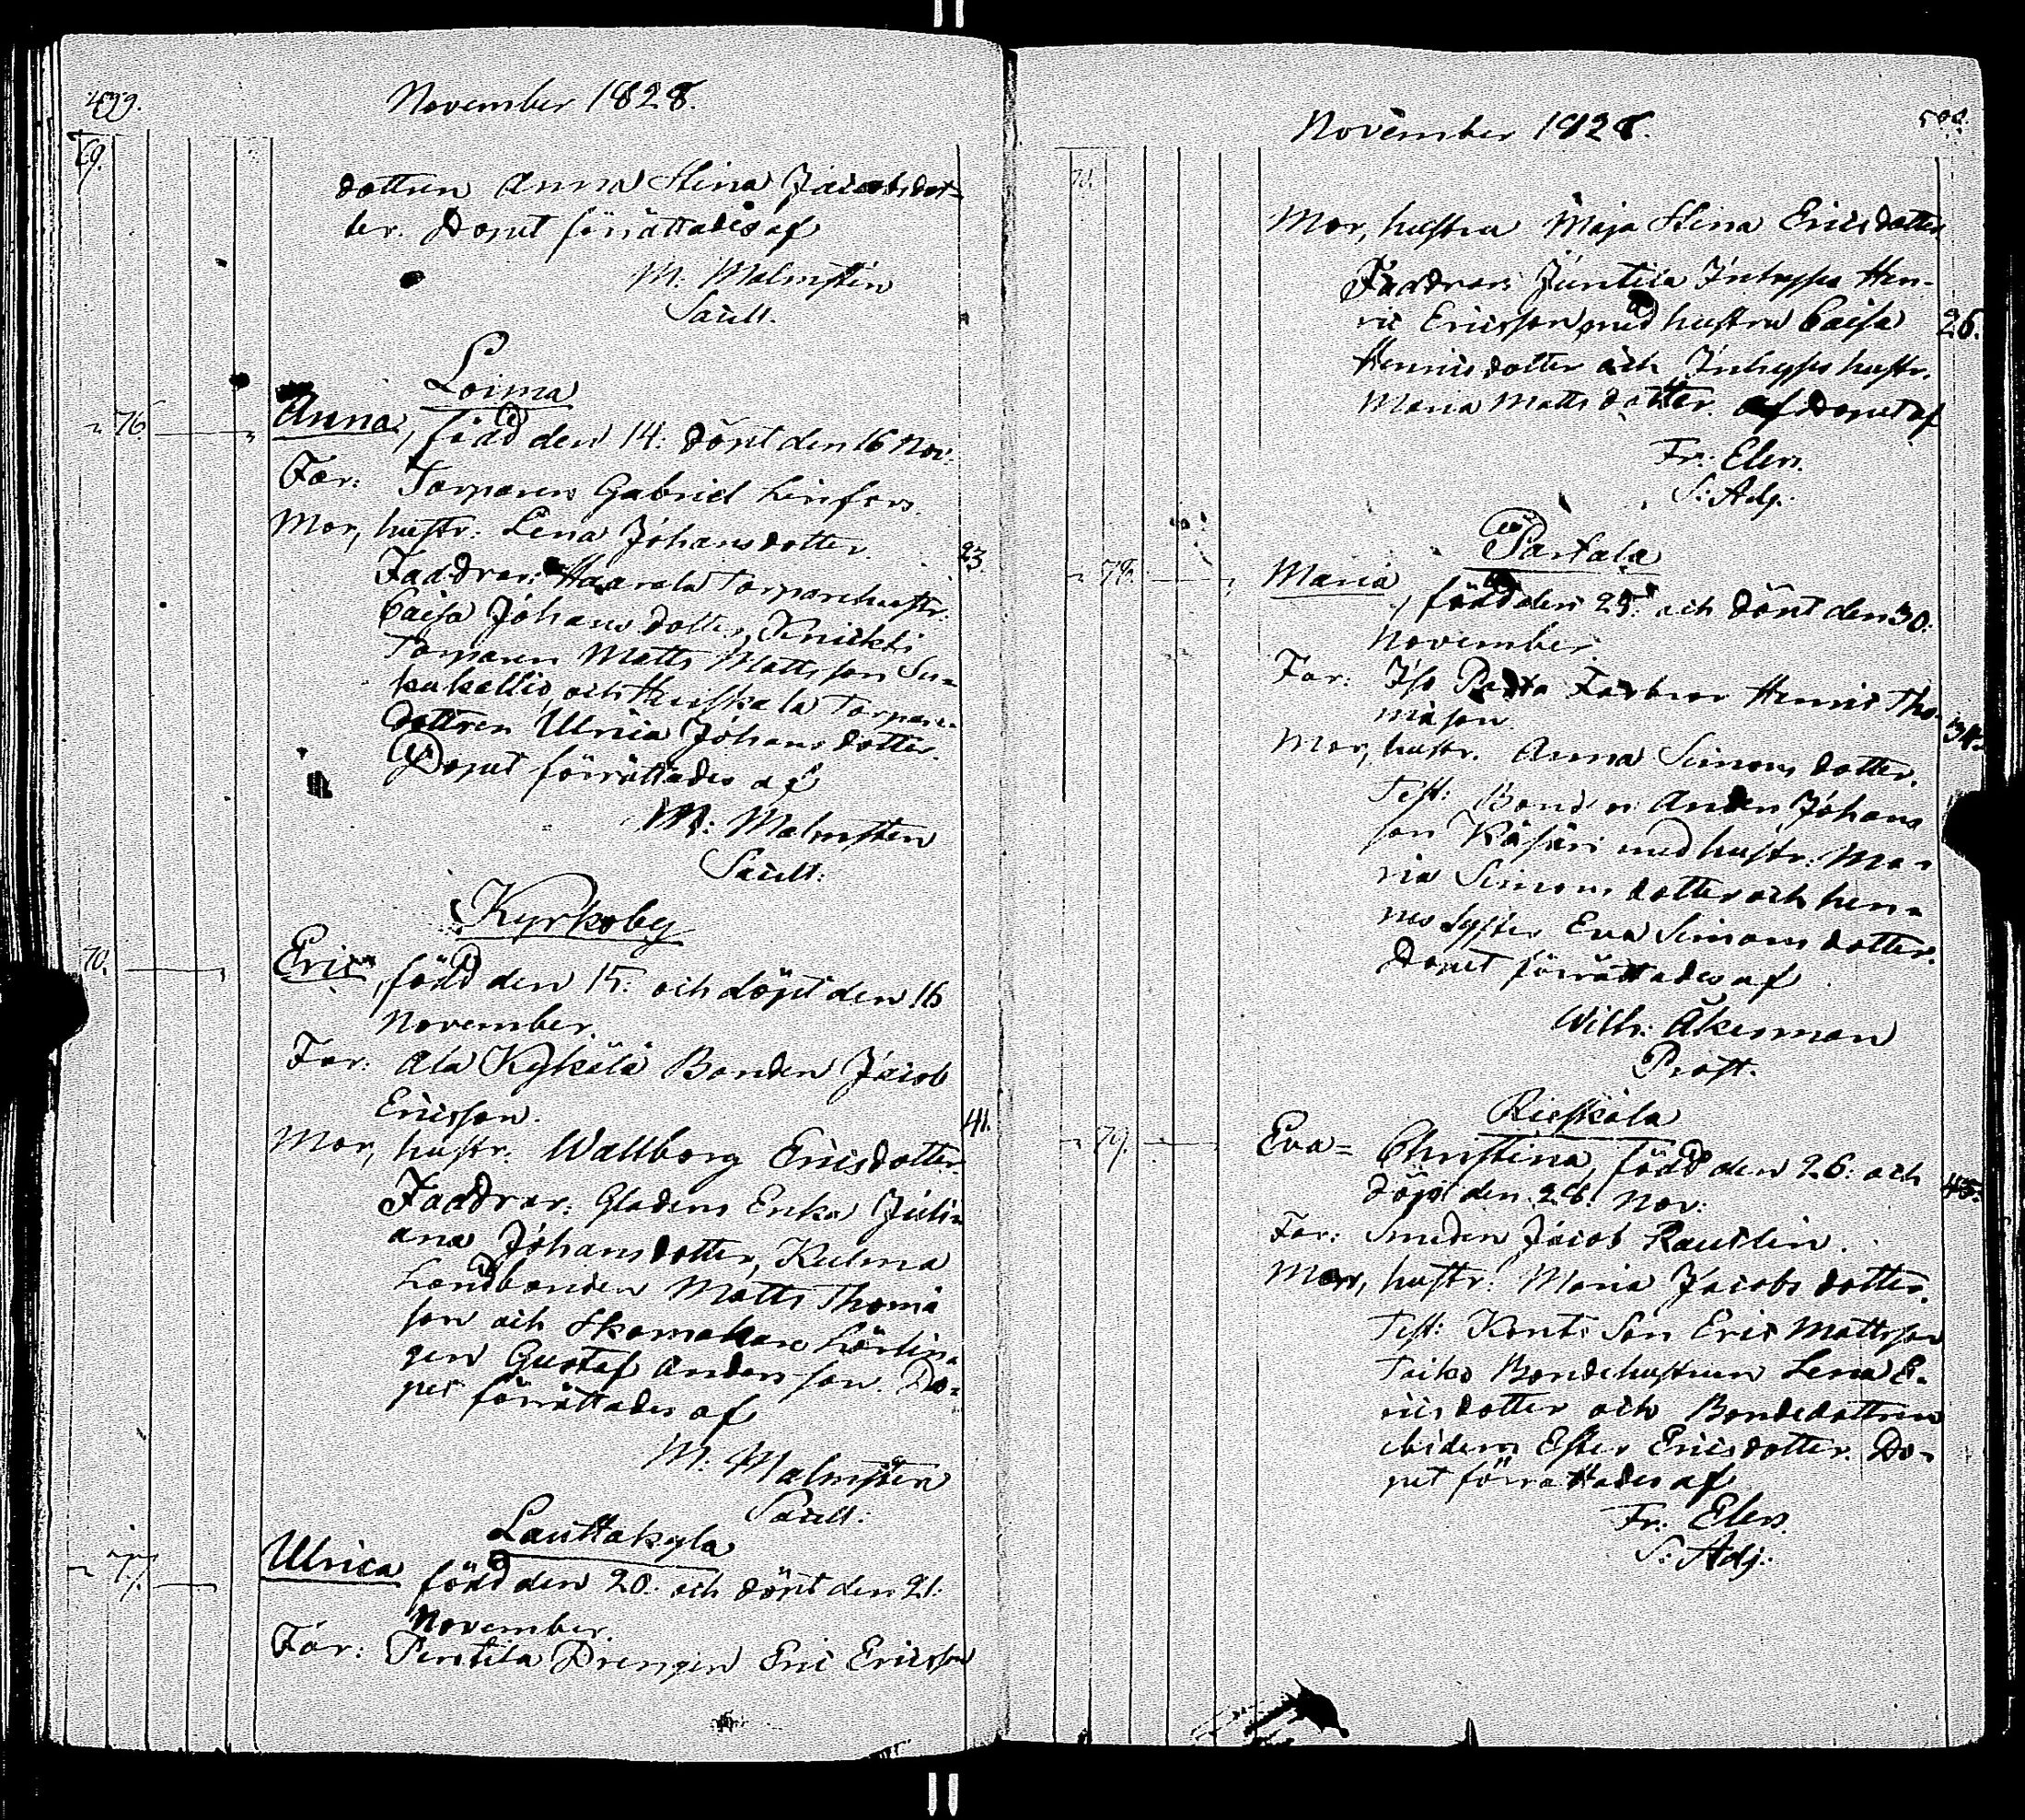 499.
November 1828.
69.
dottren Anna Stina Jacobsdot-
ter. Dopet förrättades af
M: Malmstén
Sacell.
Loima
76
Anna, född den 14: döpt den 16 Nov:
Far: Torparen Gabriel Linfors.
Mor, hustr: Lena Johansdotter.
23.
Faddrar: Haarala Torparehustr:
Caisa Johansdotter, Knickti
Torparen Matts Mattsson Su-
kukallio, och Huiskala Torpare-
dottren Ulrica Johansdotter.
Dopet förrättades af
M: Malmstén
Sacell:
Kyrkoby
70.
Eric, född den 15: och döpt den 16
November.
Far: Ala Kykälä Bonden Jacob
Ericsson.
41.
Mor, hustr. Wallborg Ericsdotter
Faddrar: Gladens Enka Juli-
ana Johansdotter, Kulma
Landbonden Matts Thoma
son och Skomakare Lärlin-
gen Gustaf Andersson. Do-
pet förrättades af
M. Malmstén
Sacell:
Lauttakyla
77.
Ulrica född den 20: och döpt den 21:
November.
Far: Penttila Drengen Eric Ericsson
November 1828.
500.
70.
Mor, hustru Maja Stina Ericsdotter
Faddrar: Juntila Inhyses Hen-
ric Ericsson med hustru Caisa
26.
Henricsdotter och Inhyses hustr.
Maria Mattsdotter. Dopet af
Fr: Elers.
S: Adj.
Partala
78.
Maria, född den 25: och döpt den 30:
November
Far: Iso Farbror Henric Tho-
mason
34.
Mor, hustr. Anna Simonsdotter.
Test: Bonden Anders Johans
son Käsäri med hustr: Ma-
ria Simonsdotter och hen-
nes Syster Eva Simonsdotter.
Dopet förrättades af
Wilh: Åkerman
Prost.
Rieskala
79.
Eva= Christina, född den 26: och
45.
döpt den 28: Nov:
Far: Smeden Jacob Rautelin.
Mor, hustr: Maria Jacobsdotter.
Test: Konti Son Eric Mattsson
Taiko Bondehustrun Lena E-
ricsdotter och Bondedottren
ibidem Ester Ericsdotter. Do-
pet förrättades af
Fr: Elers.
S: Adj: